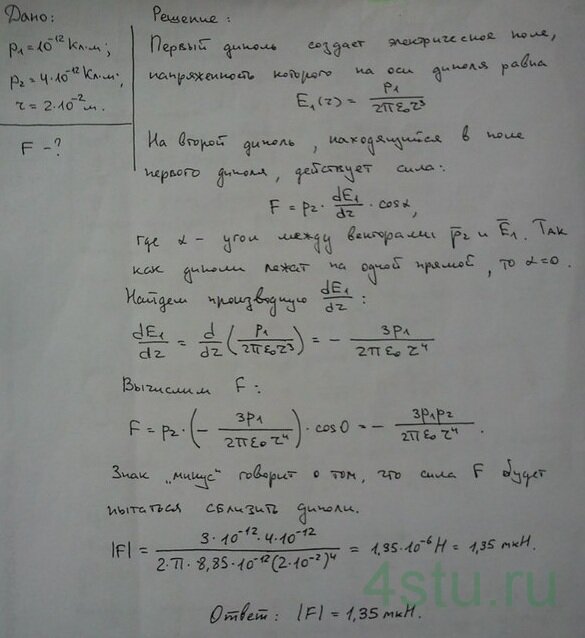 Дано:
p₁ = 10⁻¹² Кл·м;
p₂ = 4·10⁻¹² Кл·м;
r = 2·10⁻² м.
F - ?
Решение:
Первый диполь создает электрическое поле,
напряженность которого на оси диполя равна
E₁(r) = p₁ / 2πε₀r³
На второй диполь, находящийся в поле
первого диполя, действует сила:
F = p₂ · dE₁/dr · cosα,
где α - угол между векторами p̅₂ и E̅₁. Так
как диполи лежат на одной прямой, то α = 0.
Найдем производную dE₁/dr:
dE₁/dr = d/dr (p₁ / 2πε₀r³) = - 3p₁ / 2πε₀r⁴
Вычислим F:
F = p₂ · (- 3p₁ / 2πε₀r⁴) · cos0 = - 3p₁p₂ / 2πε₀r⁴.
Знак „минус" говорит о том, что сила F будет
пытаться сблизить диполи.
|F| = 3·10⁻¹²·4·10⁻¹² / 2·π·8,85·10⁻¹²(2·10⁻²)⁴ = 1,35·10⁻⁶ Н = 1,35 мкН.
4stu.ru
Ответ: |F| = 1,35 мкН.